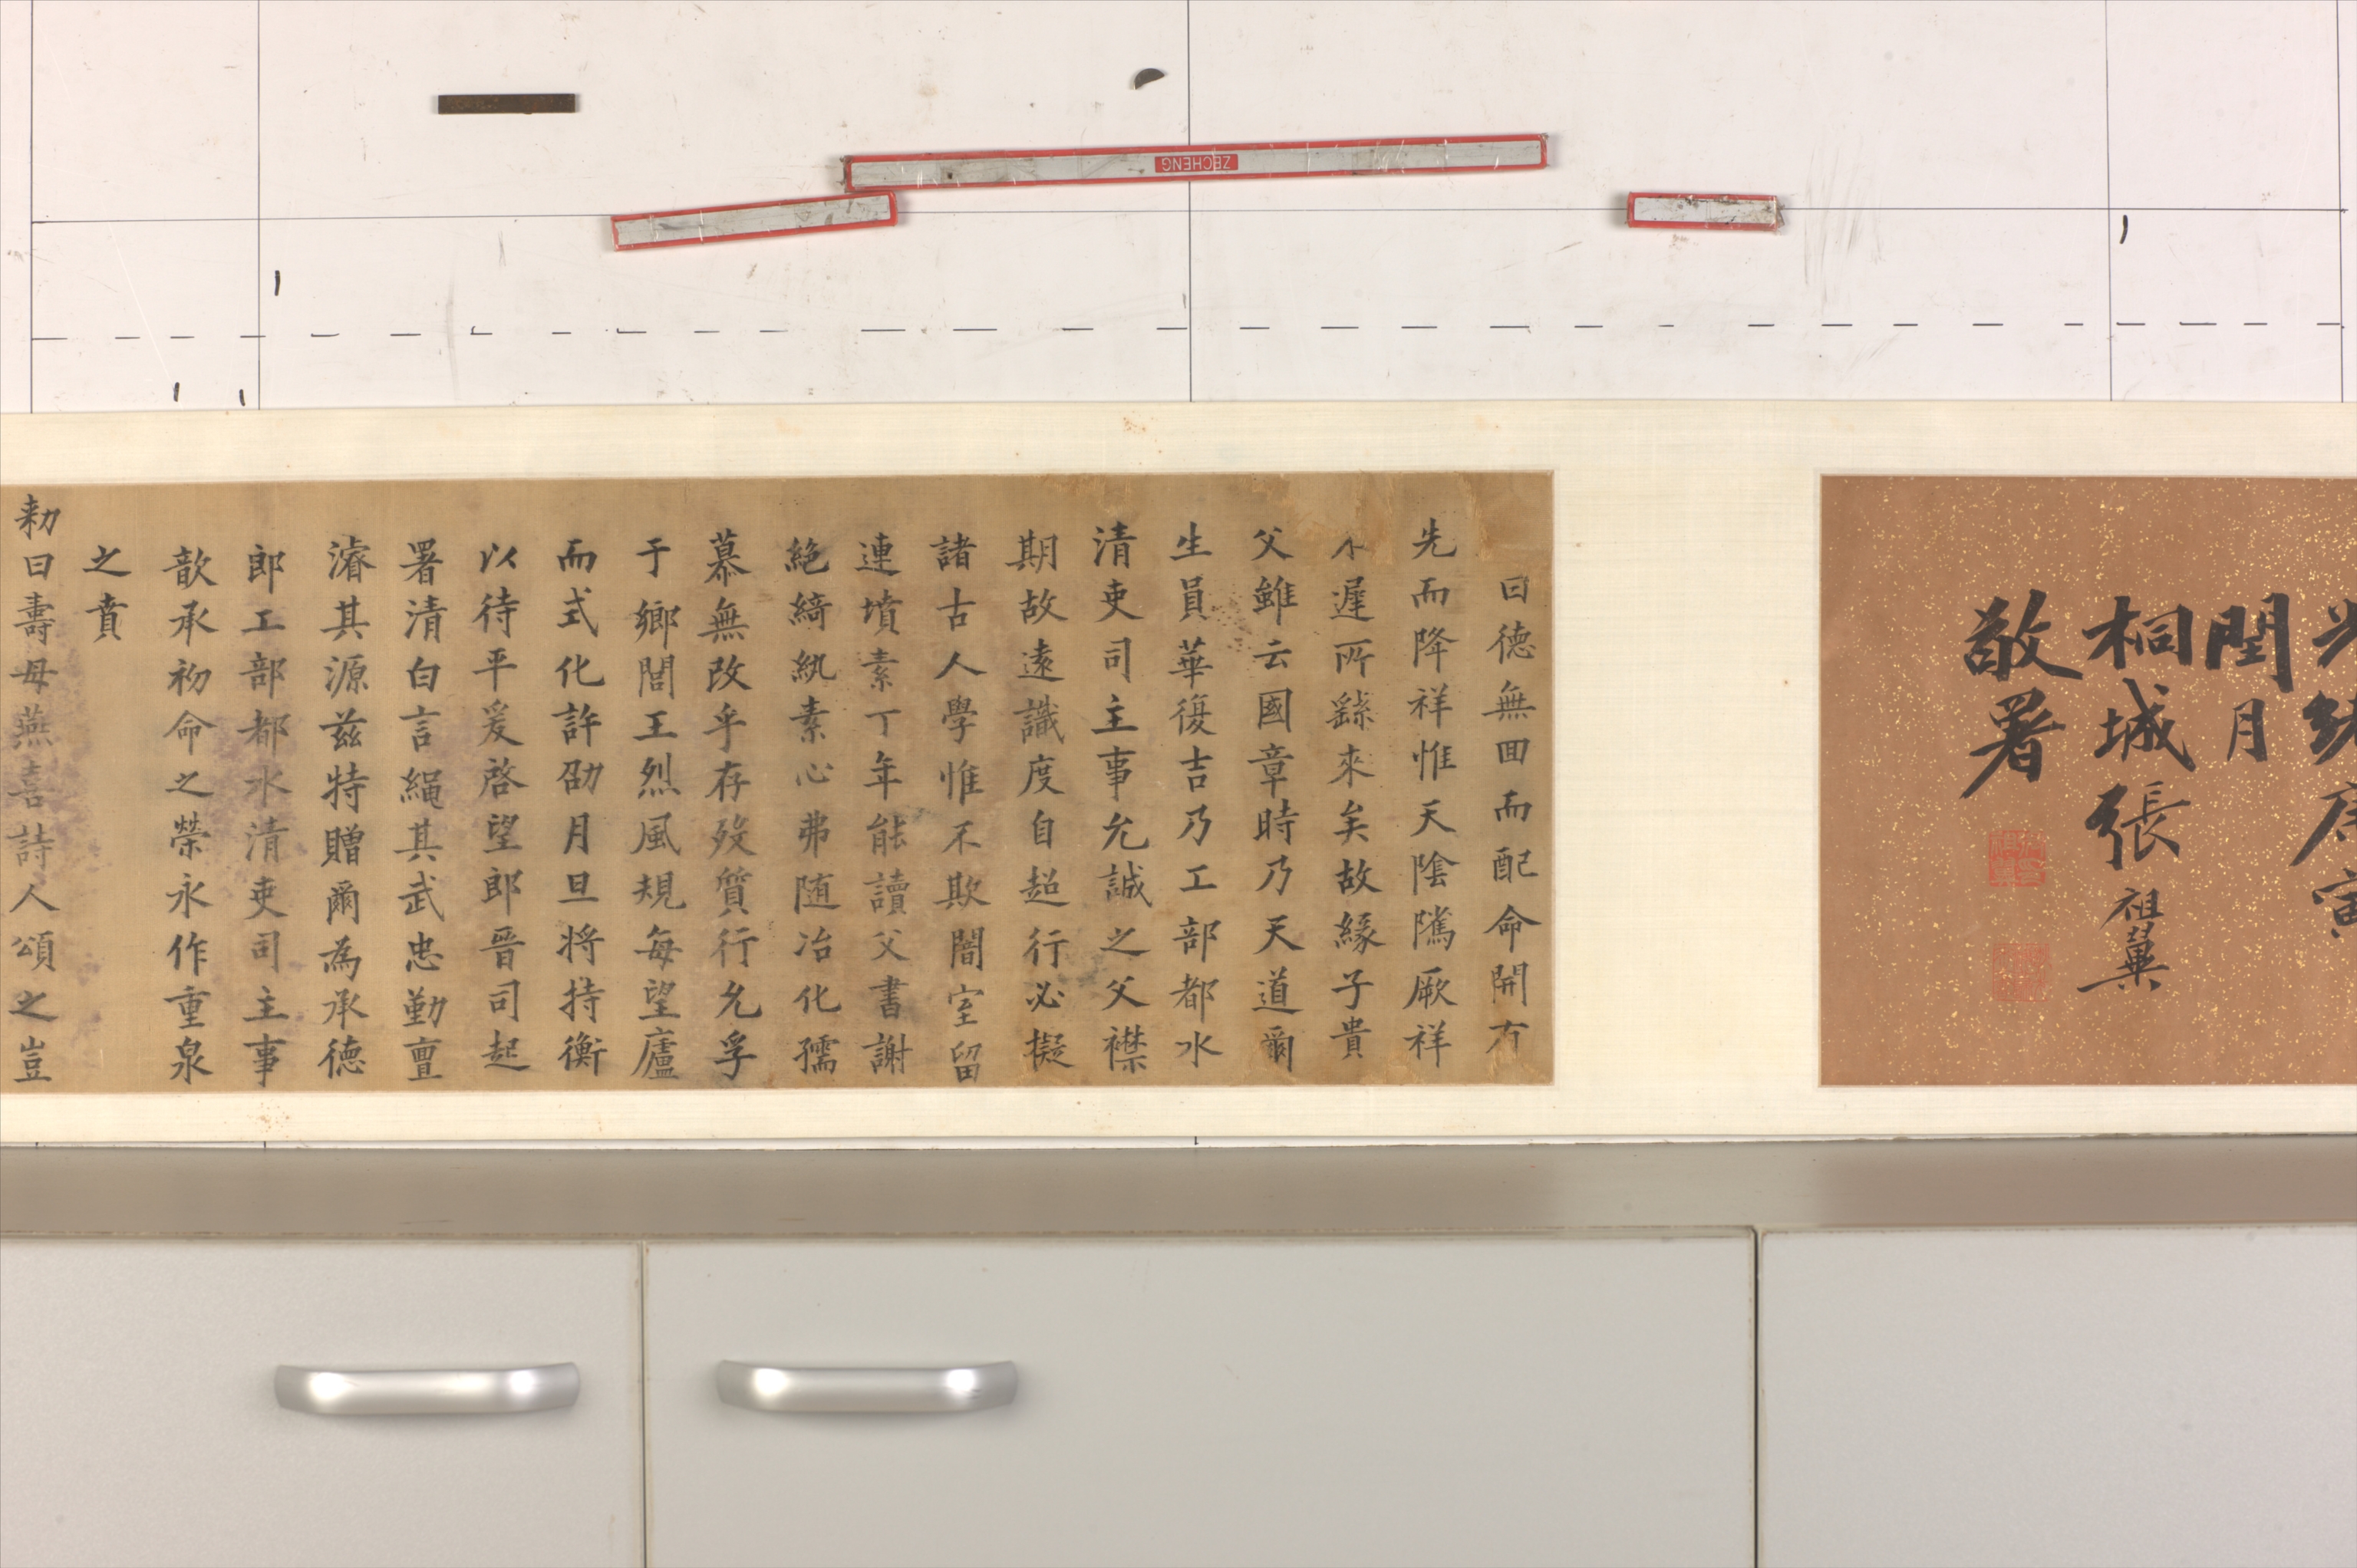 光緒庚寅
閏月
桐城張祖翼
敬署
曰德無回而配命開方
先而降祥惟天陰隲厥祥
不遲所繇來矣故緣子貴
父雖云國章時乃天道爾
生員華復吉乃工部都水
清吏司主事允誠之父襟
期故遠識度自超行必擬
諸古人學惟不欺闇室留
連墳素丁年能讀父書謝
絶綺紈素心弗随冶化孺
慕無改乎存歿質行允孚
于鄉閭王烈風規每望廬
而式化許劭月旦将持衡
以待平爰啓望郎晉司起
署清白言繩其武忠勤亶
濬其源兹特贈爾為承德
郎工部都水清吏司主事
歆承初命之榮永作重泉
之賁
勑曰壽母燕喜詩人頌之豈
ZECHENG